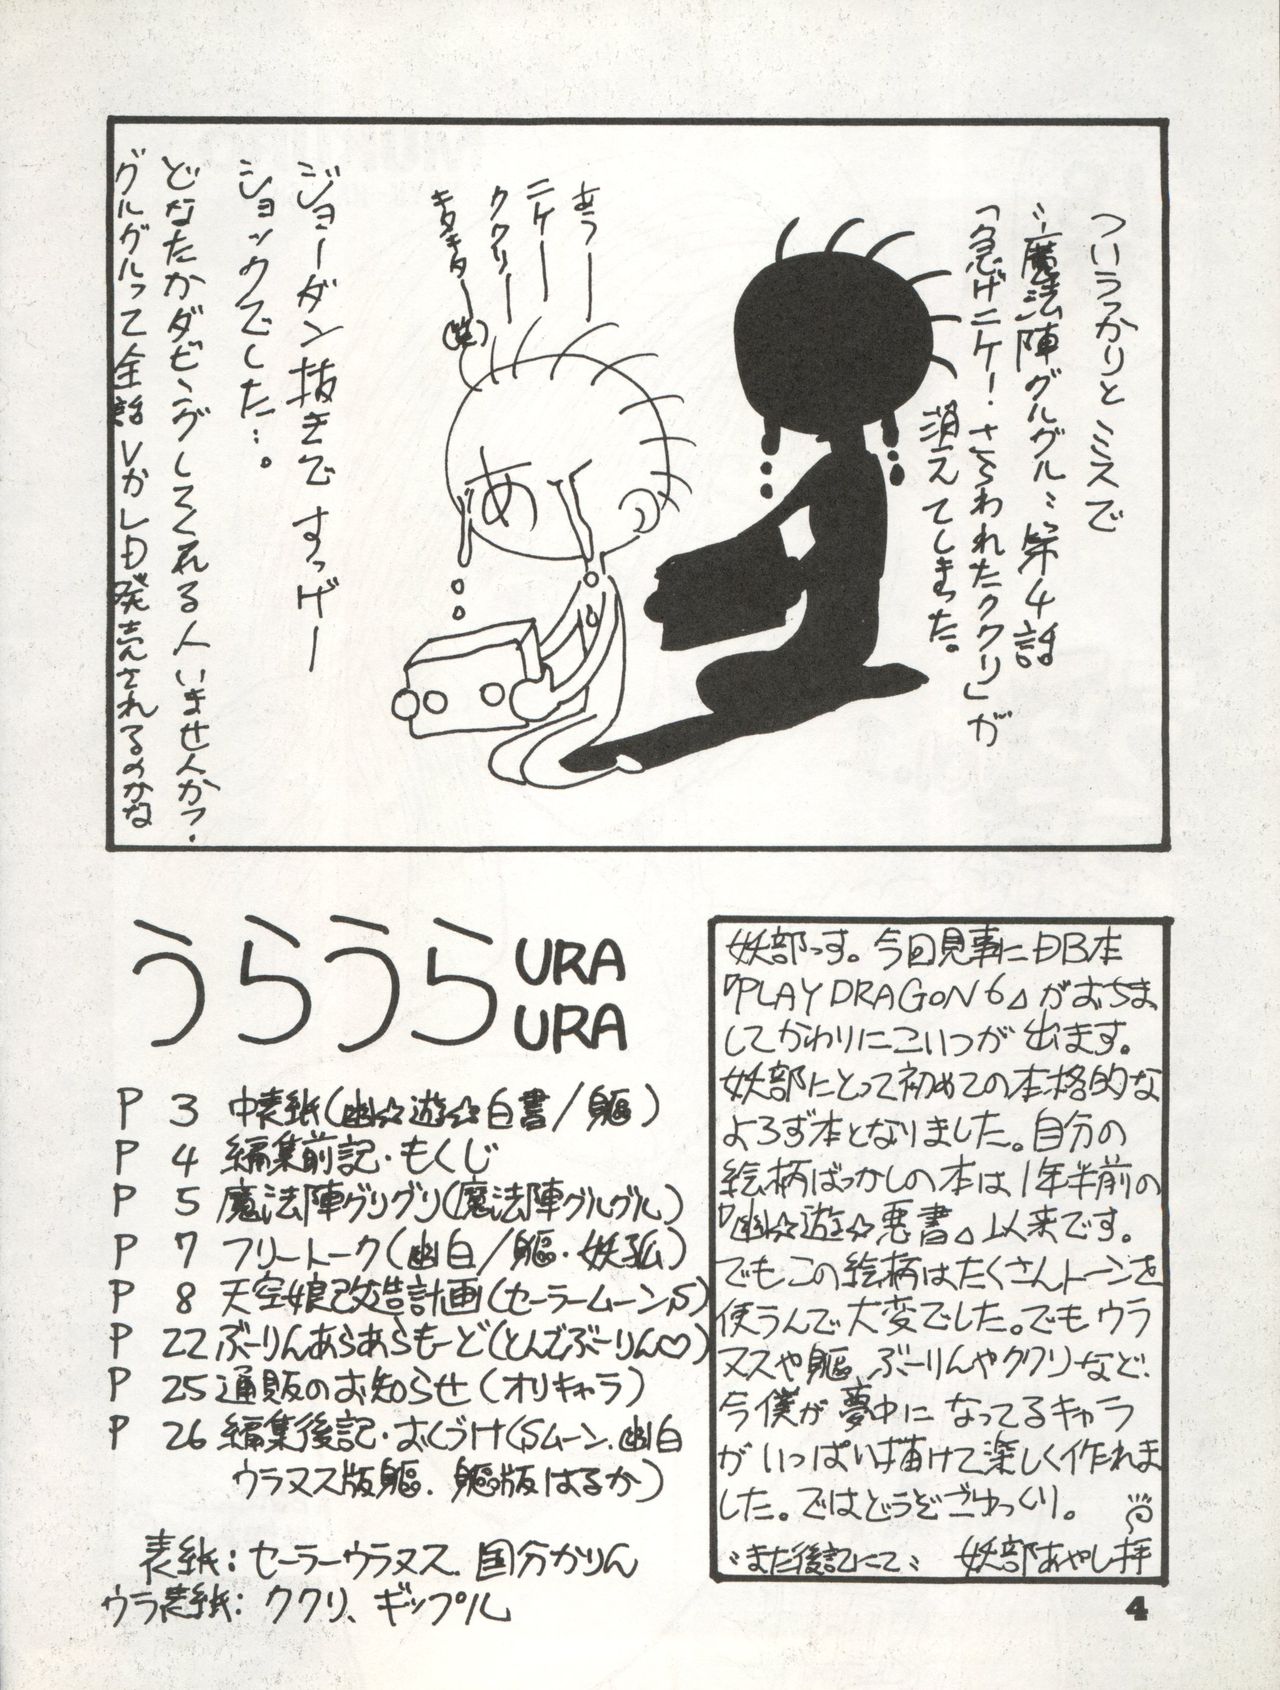 ついうっかりとミスで
〝魔法陣グルグル〟第4話
「急げニケ!さらわれたククリ」が
消えてしまった。
あうー
ニケー
ククリー
キタキター(笑)
あ
ジョーダン抜きですっげー
ショックでした…。
どなたかダビングしてくれる人いませんか?
グルグルって全話しかLD発売されるのかな
うらうら URA
URA
P 3 中表紙(幽☆遊☆白書/軀)
P 4 編集前記・もくじ
P 5 魔法陣グリグリ(魔法陣グルグル)
P 7 フリートーク(幽白/軀・妖狐)
P 8 天空娘改造計画(セーラームーンS)
P 22 ぶーりんあらあらもーど(とんでぶーりん♡)
P 25 通販のお知らせ(オリキャラ)
P 26 編集後記・おくづけ(Sムーン.幽白
ウラヌス版軀.軀版はるか)
表紙:セーラーウラヌス.国分かりん
ウラ表紙:ククリ、ギップル
妖部っす。今回見事にDB本
『PLAY DRAGON 6』がおちま
してかわりにこいつが出ます。
妖部にとって初めての本格的な
よろず本となりました。自分の
絵柄ばっかしの本は1年半前の
『幽☆遊☆悪書』以来です。
でもこの絵柄はたくさんトーンを
使うんで大変でした。でもウラ
ヌスや軀、ぶーりんやククリなど、
今僕が夢中になってるキャラ
がいっぱい描けて楽しく作れま
した。ではどうぞごゆっくり。
〝また後記にて〟 妖部あやし拝
4